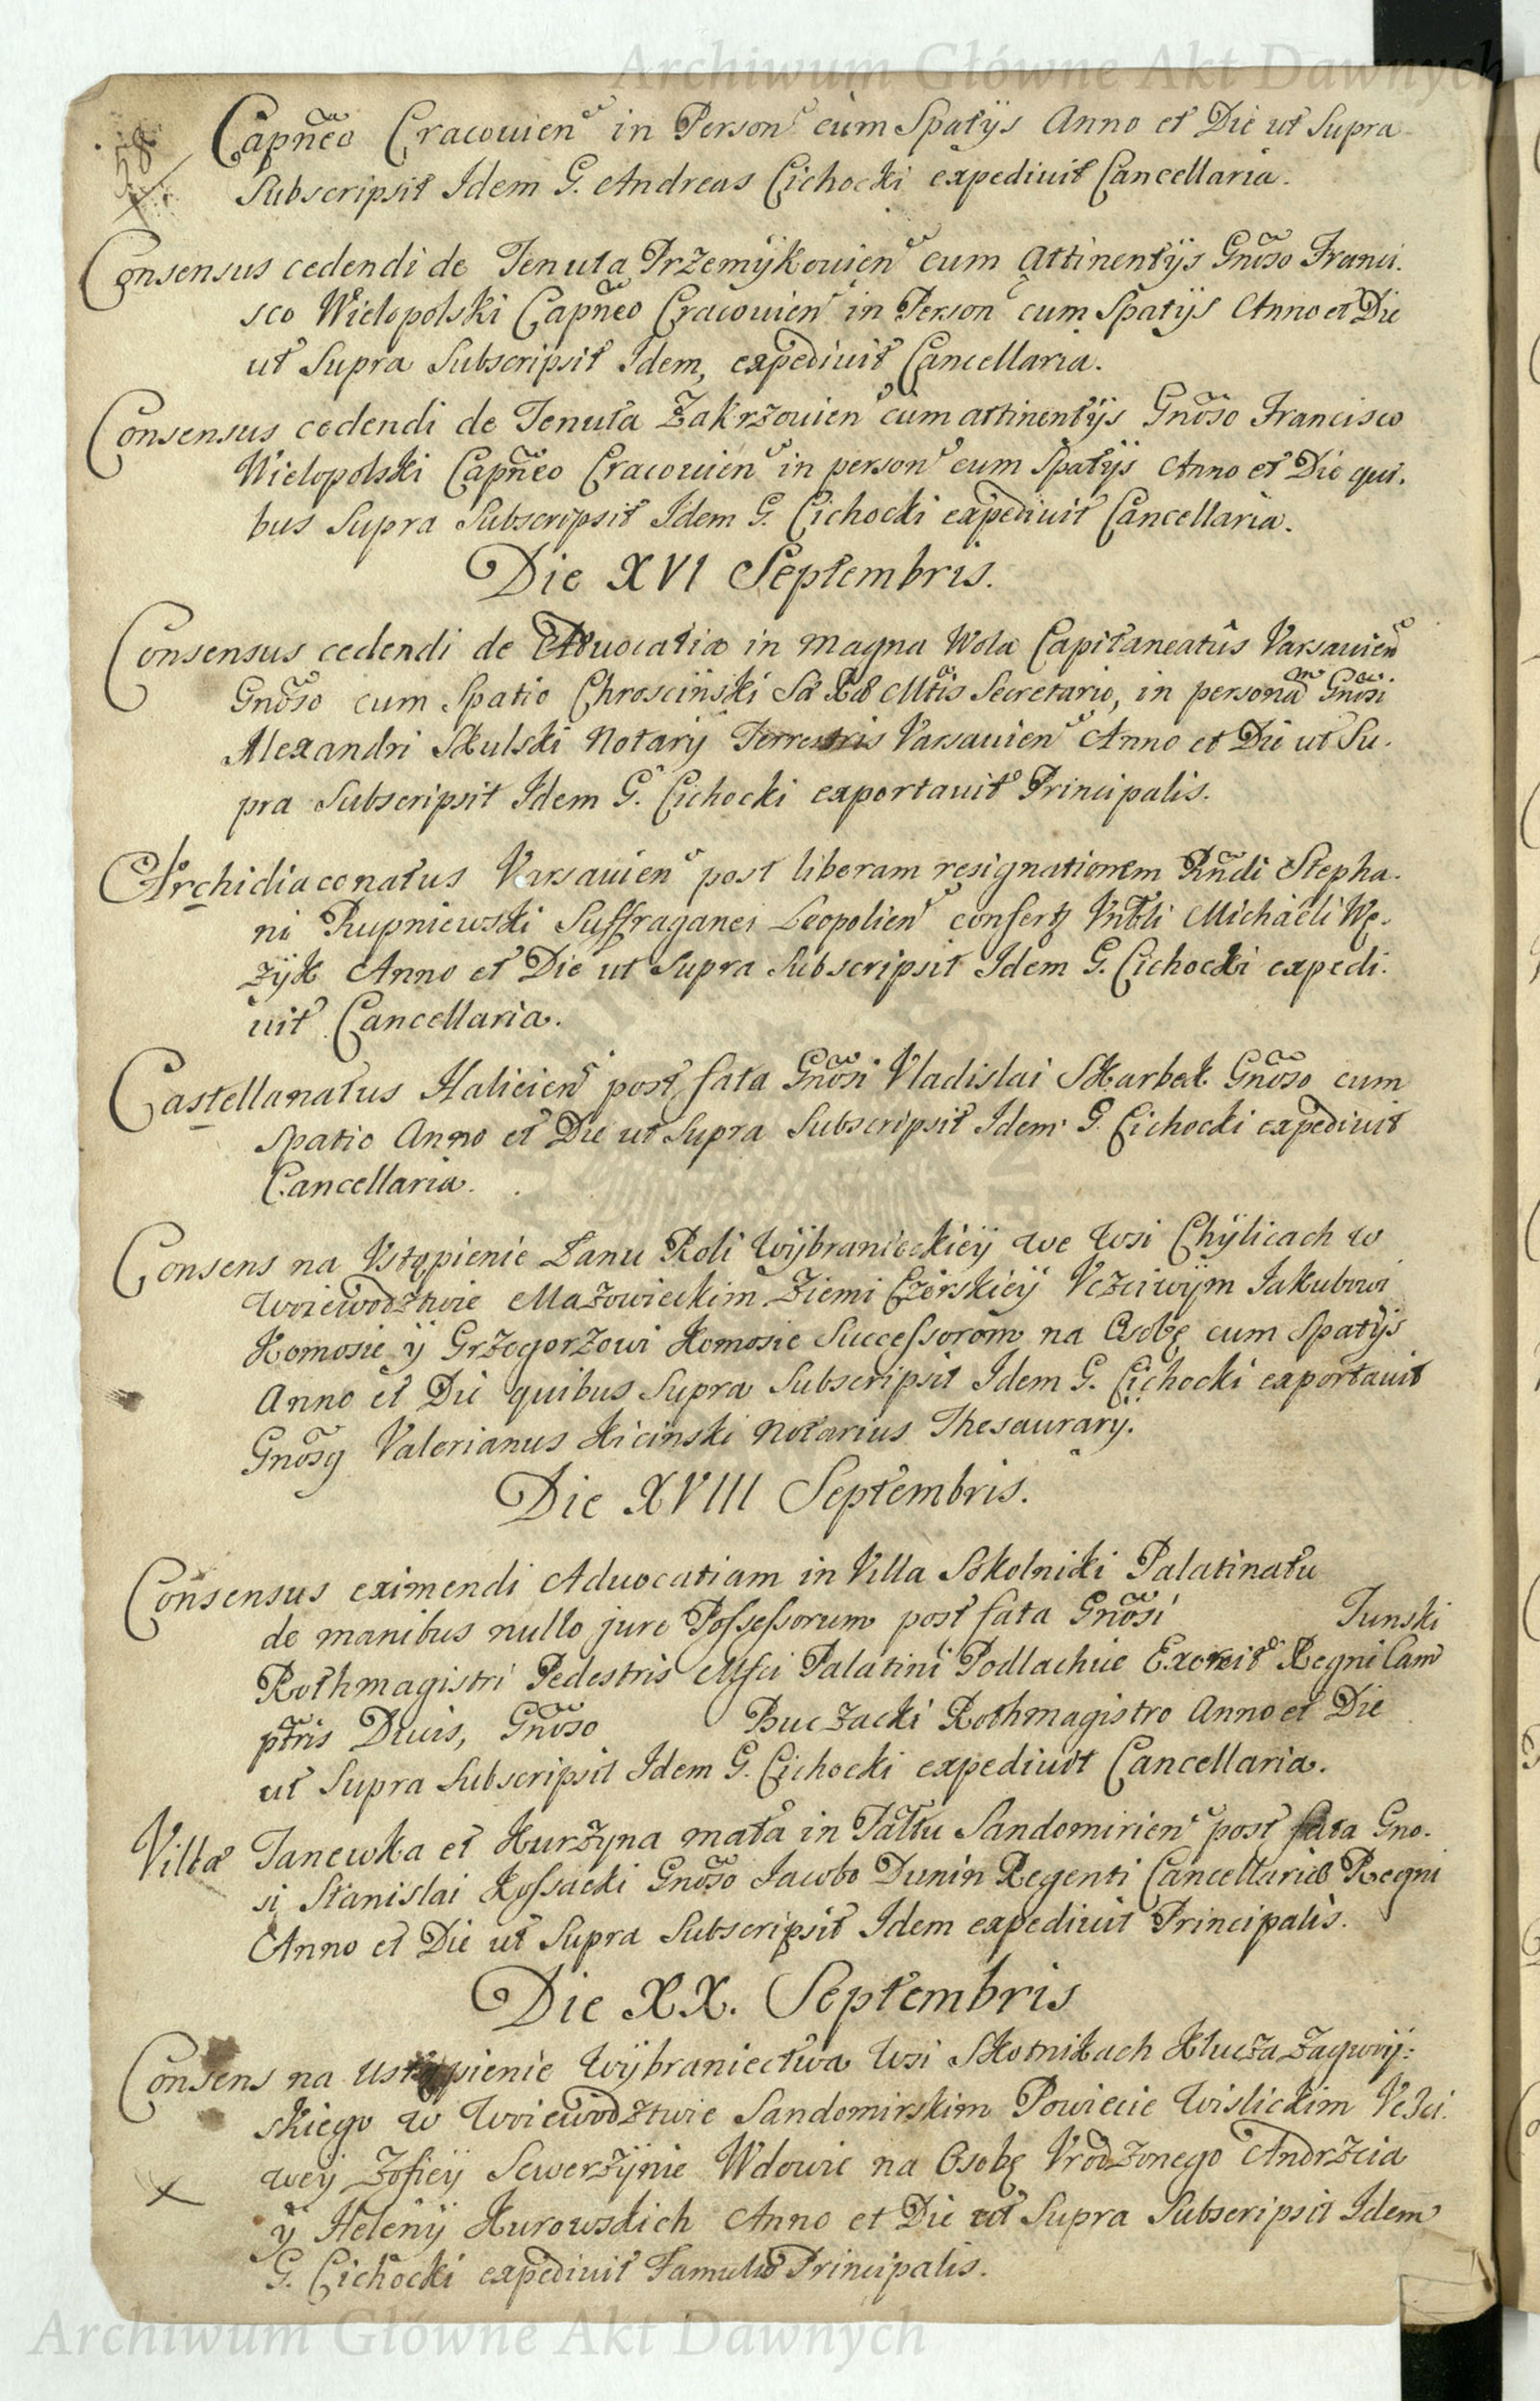 Archiwum Główne Akt Dawnych
58
Capnẽo Cracouien in Person cum Spatÿs Anno et Die ut Supra
Subscripsit Idem G. Andreas Cichocki expediuit Cancellaria.
Consensus cedendi de Tenuta Przemÿkouien cum attinentÿs Gnõso Franci.
sco Wielopolski Capnẽo Cracouien in Person cum Spatÿs Anno et Die
ut Supra Subscripsit Idem, expediuit Cancellaria.
Consensus cedendi de Tenuta Zakrzouien cum attinentÿs Gnõso Francisco
Wielopolski Capnẽo Cracouien in person cum Spatÿs Anno et Die qui.
bus Supra Subscripsit Idem G. Cichocki expediuit Cancellaria.
Die XVI Septembris.
Consensus cedendi de Aduocatia in magna Wola Capitaneatûs Varsauien
Gnõso cum Spatio Chrosciński Sã Rå Mtis Secretario, in personam Gnõsi
Alexandri Skulski Notarÿ Terrestris Varsauien Anno et Die ut Su.
pra Subscripsit Idem G. Cichocki exportauit Principalis.
Archidiaconatus Varsauien post liberam resignationem Rñdi Stepha.
ni Rupniewski Suffraganei Leopolien confert Vnbli Michaeli Wę.
zÿk Anno et Die ut Supra Subscripsit Idem G. Cichocki expedi.
uit Cancellaria.
Castellanatus Halicien post fata Gnõsi Vladislai Skarbek Gnõso cum
Spatio Anno et Die ut Supra Subscripsit Idem G. Cichocki expediuit
Cancellaria.
Consens na Vstąpienie Łanu Roli Wÿbranieckiéÿ we Wsi Chÿlicach w
Woiewodztwie Mazowieckim Ziemi Czerskiéÿ Vczciwÿm Iakubowi
Komosie ÿ Grzegorzowi Komosie Successorom na Osobę cum Spatÿs
Anno et Die quibus Supra Subscripsit Idem G. Cichocki exportauit
Gnõsg Valerianus Kicinski Notarius Thesaurarÿ.
Die XVIII Septembris.
Consensus eximendi Aduocatiam in Villa Skolniki Palatinatu
de manibus nullo jure Possessorum post fata Gnõsi Tunski
Rothmagistri Pedestris Mfci Palatini Podlachiæ Exercit Regni Cam
ptris Ducis, Gnõso Buczacki Rothmagistro Anno et Die
ut Supra Subscripsit Idem G. Cichocki expediuit Cancellaria.
Villæ Tanewka et Kurzyna mała in Pãltu Sandomirien post fata Gno.
si Stanislai Kossacki Gnõso Iacobo Dunin Regenti Cancellariæ Regni
Anno et Die ut Supra Subscripsit Idem expediuit Principalis.
Die XX. Septembris
Consens na ustąpienie Wÿbraniectwa Wsi Skotnikach Klucza Zagwÿ:
skiego w Woiewodztwie Sandomirskim Powiecie Wislickim Vczci.
weÿ Zofieÿ Sewerzÿnie Wdowie na Osobę Vrodzonego Andrzeia
ÿ Helenÿ Kurowskich Anno et Die ut Supra Subscripsit Idem
G. Cichocki expediuit Famulus Principalis.
Archiwum Główne Akt Dawnych